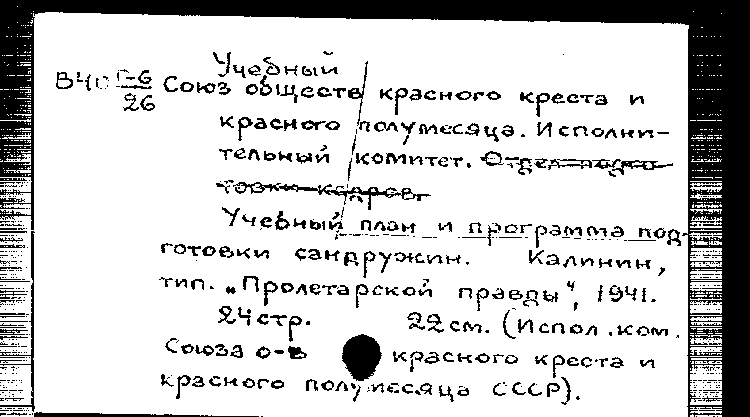 Учебный
В40 Г-6/26 Союз обществ красного креста и
красного полумесяца. Исполни-
тельный комитет. Отдел подго-
товки кадров.
Учебный план и программа под-
готовки сандружин. Калинин,
тип. „Пролетарской правды", 1941.
24 стр. 22 см. (Испол. ком.
Союза о-в красного креста и
красного полумесяца СССР).